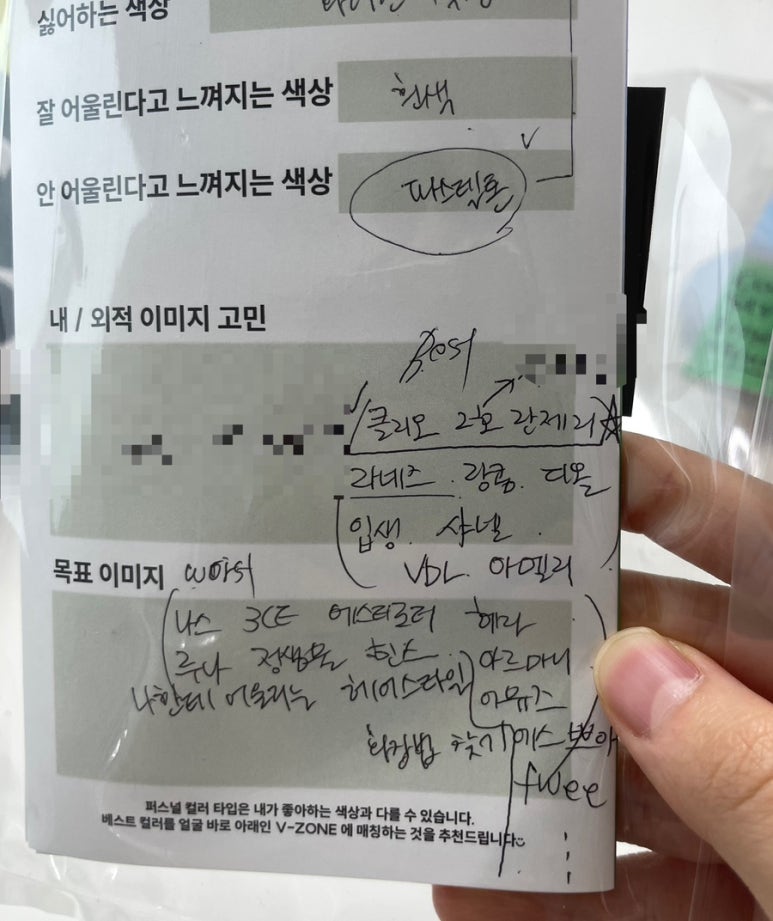 싫어하는 색상
잘 어울린다고 느껴지는 색상 흰색
안 어울린다고 느껴지는 색상 파스텔톤
내 / 외적 이미지 고민
Best
클리오 2호 란제리
라네즈. 랑콤. 디올
입생. 샤넬.
VDL 아멜리
목표 이미지 worst
나스 3CE 에스티로더 헤라
루나 정샘물 힌스. 아르마니
나한테 어울리는 헤어스타일 아뮤즈
화장법 찾기 에스쁘아
fwee
퍼스널 컬러 타입은 내가 좋아하는 색상과 다를 수 있습니다.
베스트 컬러를 얼굴 바로 아래인 V-ZONE 에 매칭하는 것을 추천드립니다